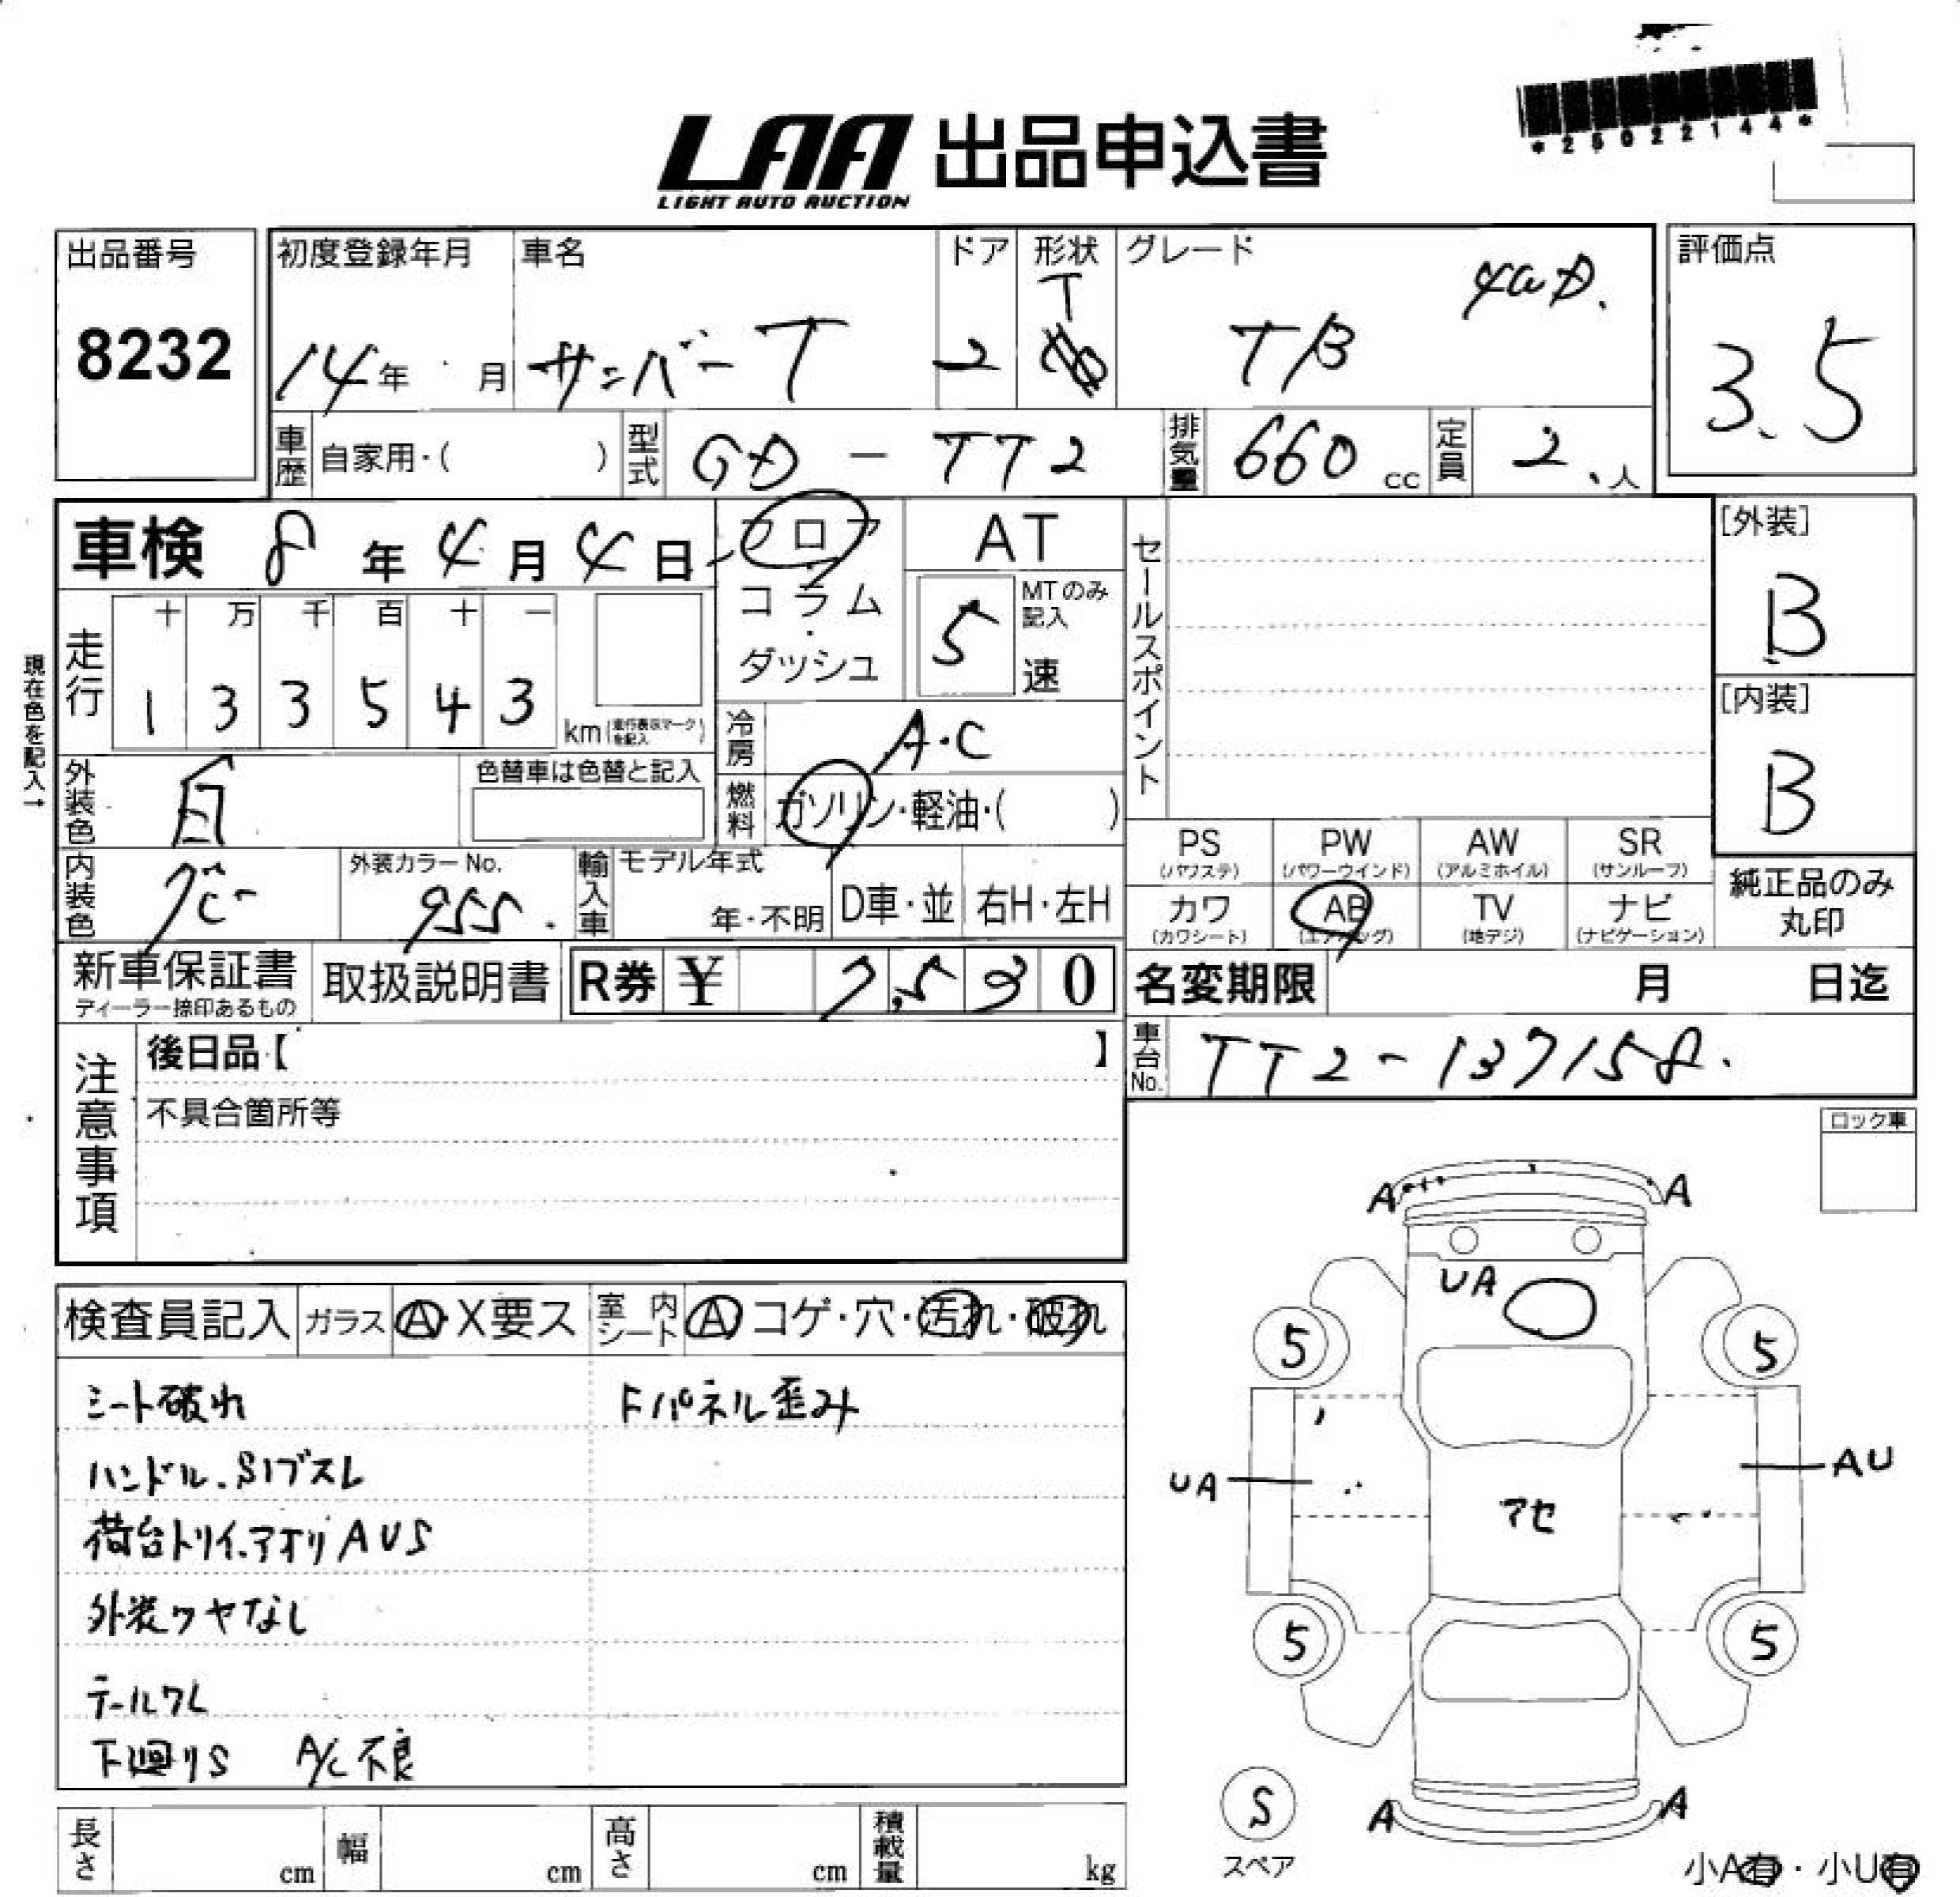 *25022144*
LAA 出品申込書
LIGHT AUTO AUCTION
出品番号 8232
初度登録年月 14年 月
車名 サンバーT
ドア 2
形状 T
グレード TB 4WD.
評価点 3.5
車歴 自家用・( )
型式 GD - TT2
排気量 660 cc
定員 2 人
車検 8年4月4日
フロア・コラム・ダッシュ
AT
MTのみ記入 5 速
セールスポイント
[外装] B
[内装] B
現在色を記入→
走行 十 万 千 百 十 一
1 3 3 5 4 3 km(走行表示マークを記入)
冷房 A・C
外装色 白
色替車は色替と記入
燃料 ガソリン・軽油・( )
内装色 グレー
外装カラーNo. 955.
輸入車 モデル年式 年・不明
D車・並 右H・左H
PS (パワステ) PW (パワーウインド) AW (アルミホイル) SR (サンルーフ)
カワ (カワシート) AB (エアバッグ) TV (地デジ) ナビ (ナビゲーション)
純正品のみ丸印
新車保証書 ディーラー捺印あるもの
取扱説明書
R券 ¥ 7,530
名変期限 月 日迄
車台No. TT2-137158.
注意事項
後日品【 】
不具合箇所等
ロック車
検査員記入 ガラス A・X要ス 室内シート A コゲ・穴・汚れ・破れ
シート破れ Fパネル歪み
ハンドル.S1ブスレ
荷台トリイ.アオリAUS
外装ツヤなし
テールワレ
下廻りS A/C不良
A A
UA
5 5
UA AU
アセ
5 5
A A
S
スペア
小A有・小U有
長さ cm 幅 cm 高さ cm 積載量 kg